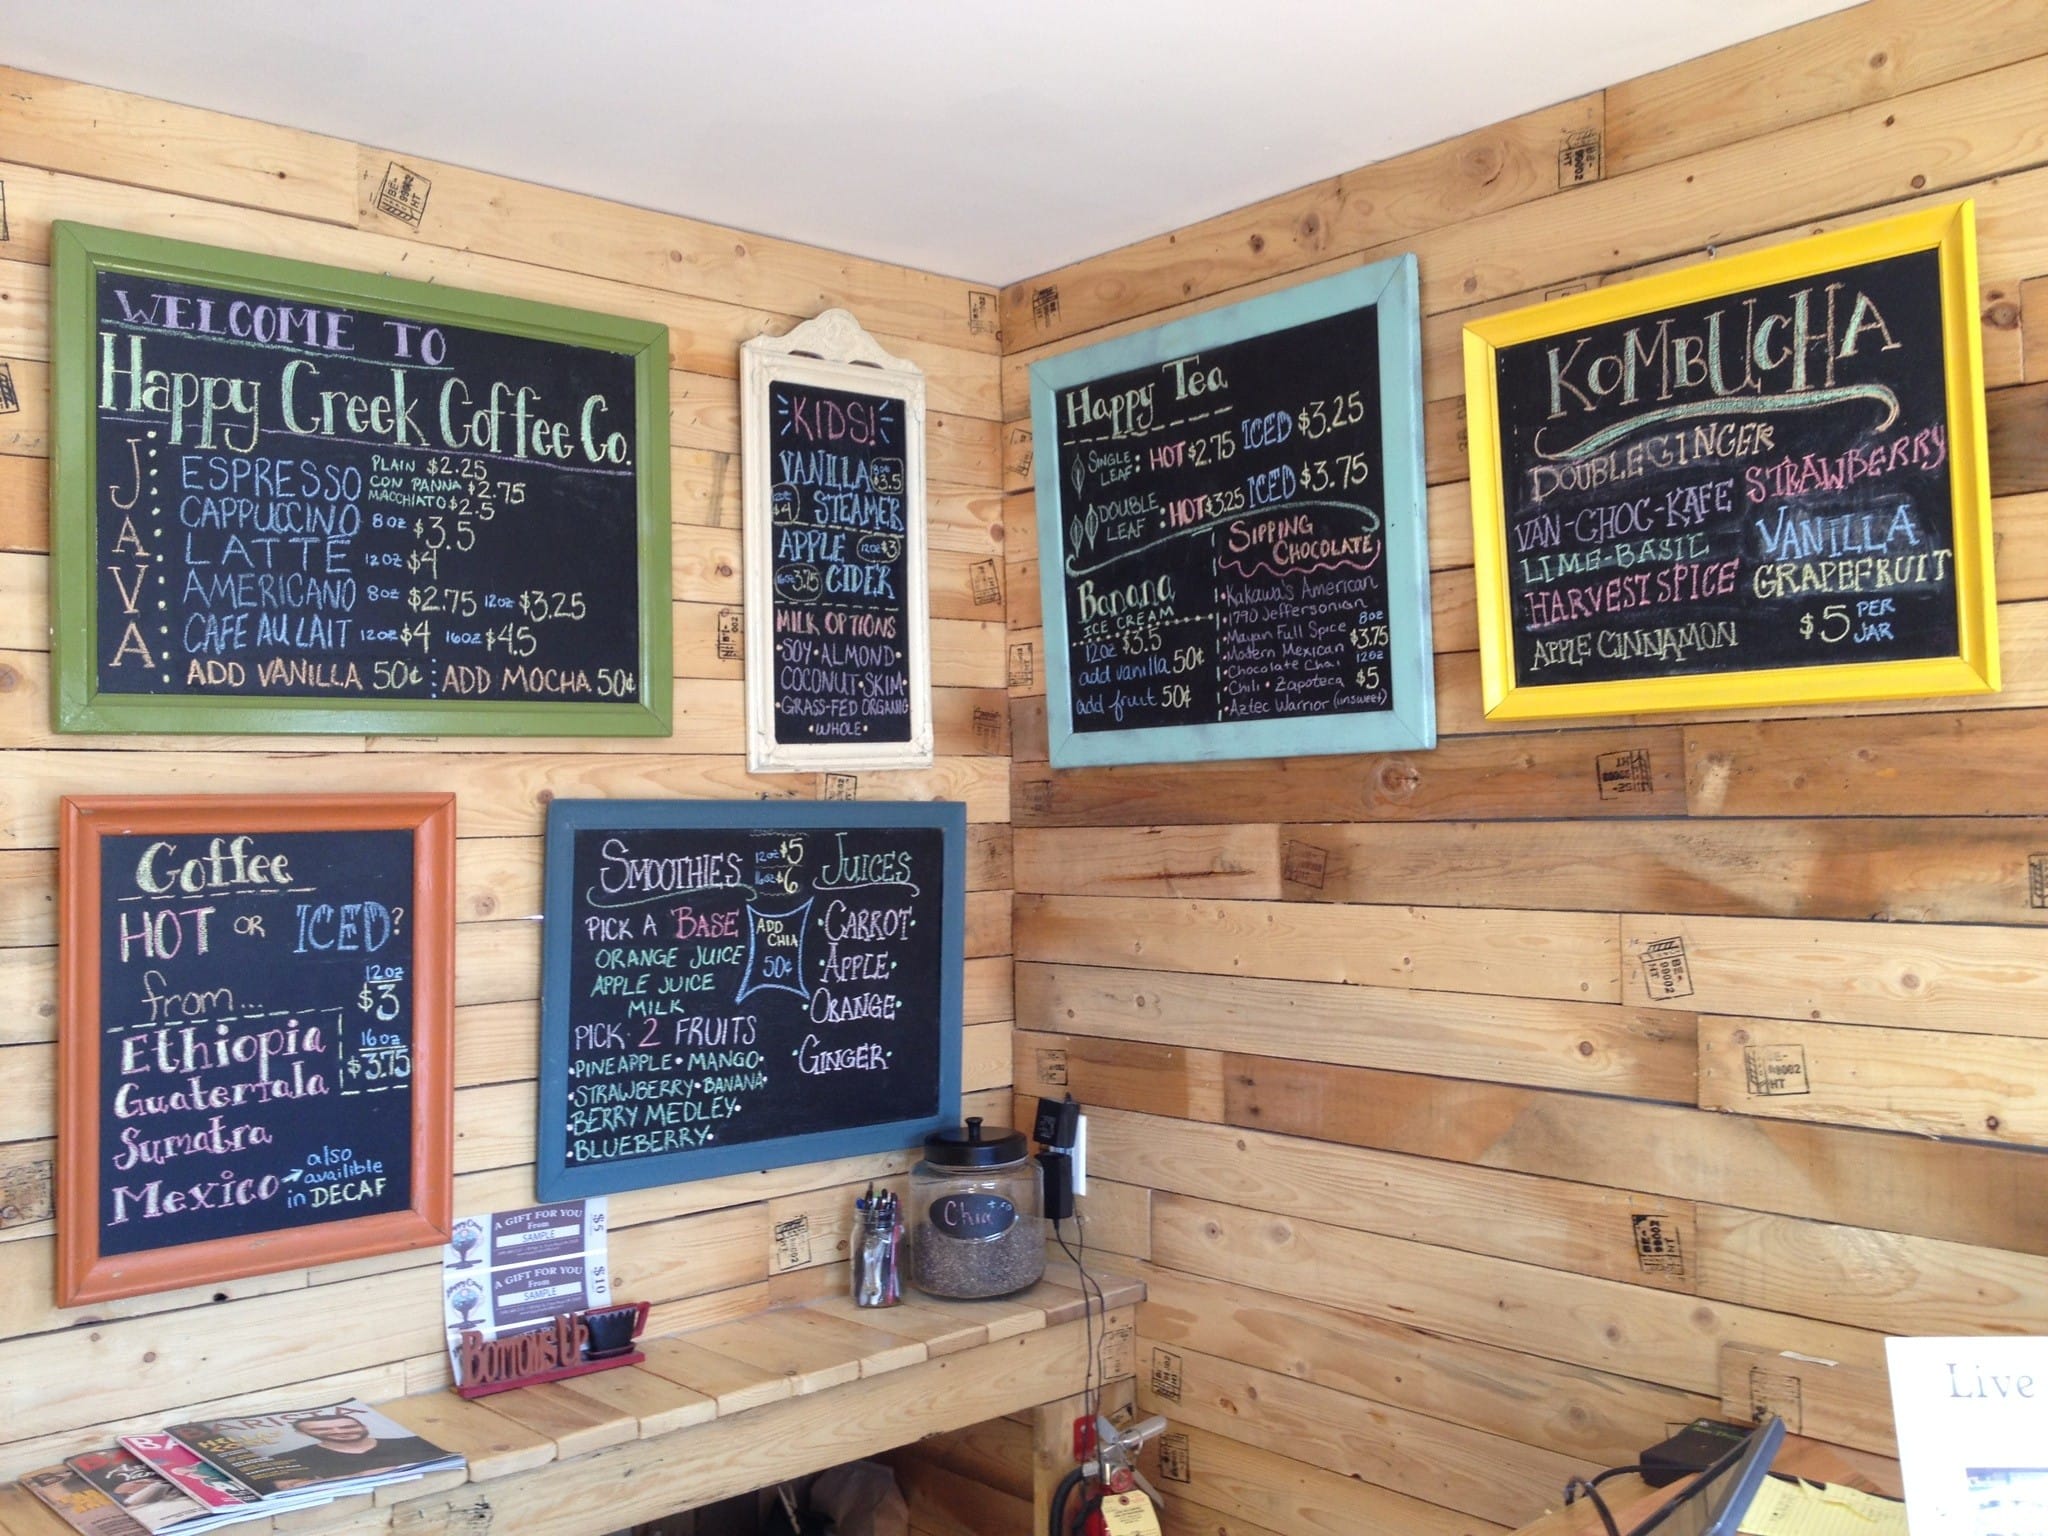 WELCOME TO
Happy Creek Coffee Co.
JAVA
ESPRESSO PLAIN $2.25
CON PANNA $2.75
MACCHIATO $2.5
CAPPUCCINO 8oz $3.5
LATTE 12oz $4
AMERICANO 8oz $2.75 12oz $3.25
CAFE AU LAIT 12oz $4 16oz $4.5
ADD VANILLA 50¢ ADD MOCHA 50¢
KIDS!
VANILLA 8oz $3.5
12oz $4 STEAMER
APPLE 12oz $3
16oz 3.75 CIDER
MILK OPTIONS
•SOY•ALMOND•
COCONUT•SKIM•
•GRASS-FED ORGANIC
•WHOLE•
Happy Tea
SINGLE LEAF: HOT $2.75 ICED $3.25
DOUBLE LEAF: HOT $3.25 ICED $3.75
Banana
ICE CREAM
12oz $3.5
add vanilla 50¢
add fruit 50¢
SIPPING
CHOCOLATE
•Kakawa's American
•1790 Jeffersonian
•Mayan Full Spice 8oz
•Modern Mexican $3.75
•Chocolate Chai 12oz
•Chili •Zapoteca $5
•Aztec Warrior (unsweet)
KOMBUCHA
DOUBLE GINGER
STRAWBERRY
VAN-CHOC-KAFE
VANILLA
LIME-BASIL
GRAPEFRUIT
HARVEST SPICE
APPLE CINNAMON
$5 PER JAR
Coffee
HOT OR ICED?
from...
12oz
$3
16oz
$3.75
Ethiopia
Guatemala
Sumatra
Mexico → also
availible
in DECAF
SMOOTHIES 12oz $5
16oz $6
PICK A BASE
ORANGE JUICE
APPLE JUICE
MILK
ADD
CHIA
50¢
PICK 2 FRUITS
•PINEAPPLE•MANGO•
•STRAWBERRY•BANANA•
•BERRY MEDLEY•
•BLUEBERRY•
JUICES
•CARROT•
•APPLE•
•ORANGE•
•GINGER•
Chia +.50
A GIFT FOR YOU
From
SAMPLE
$5
A GIFT FOR YOU
From
SAMPLE
$10
BOTTOMS UP
BARISTA
Live